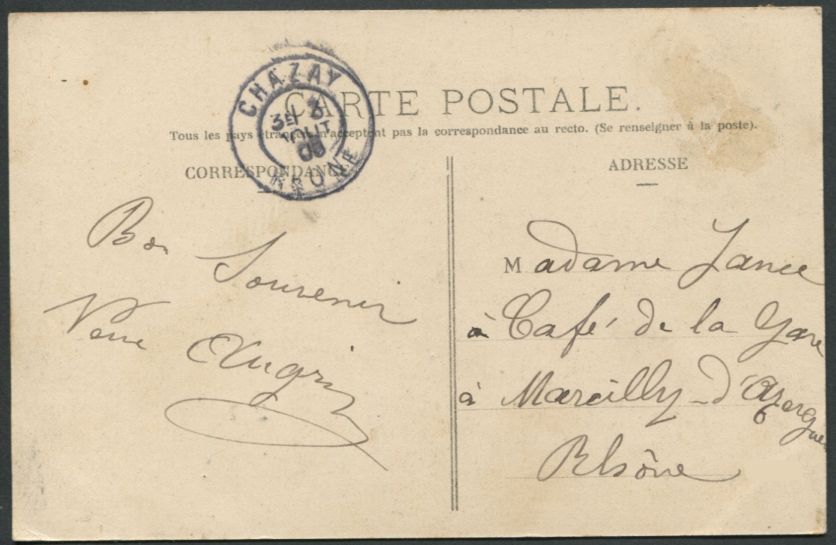 CARTE POSTALE.
Tous les pays étrangers n'acceptent pas la correspondance au recto. (Se renseigner à la poste).
CHAZAY
3E 3
08
RHONE
CORRESPONDANCE
Bon Souvenir
ADRESSE
Madame
à Café de la Gare
à Marcilly-d'Azergues
Rhône